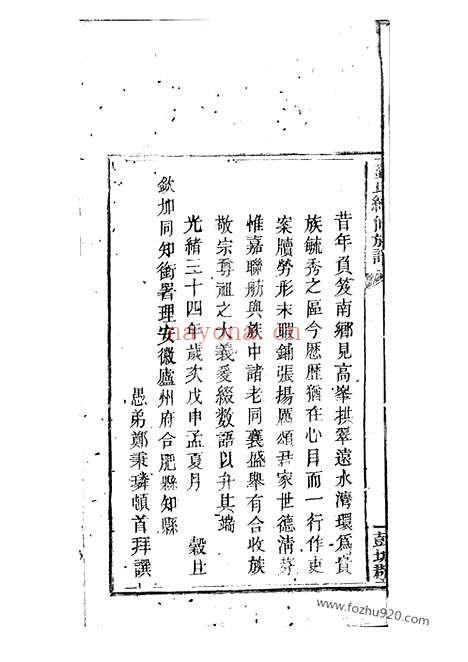 昔年負笈南鄉見高峯拱翠遠水灣環爲貴
族毓秀之區今歷歷猶在心目而一行作吏
案牘勞形未暇鋪張揚厲頌君家世德清芬
惟嘉聯舫與族中諸老同襄盛舉有合收族
敬宗尊祖之大義爰綴数語以弁其端
光緒三十四年歲次戊申孟夏月 穀旦
欽加同知銜署理安徽廬州府合肥縣知縣
愚弟鄭秉璘頓首拜譔
nayona.cn
www.fozhu920.com